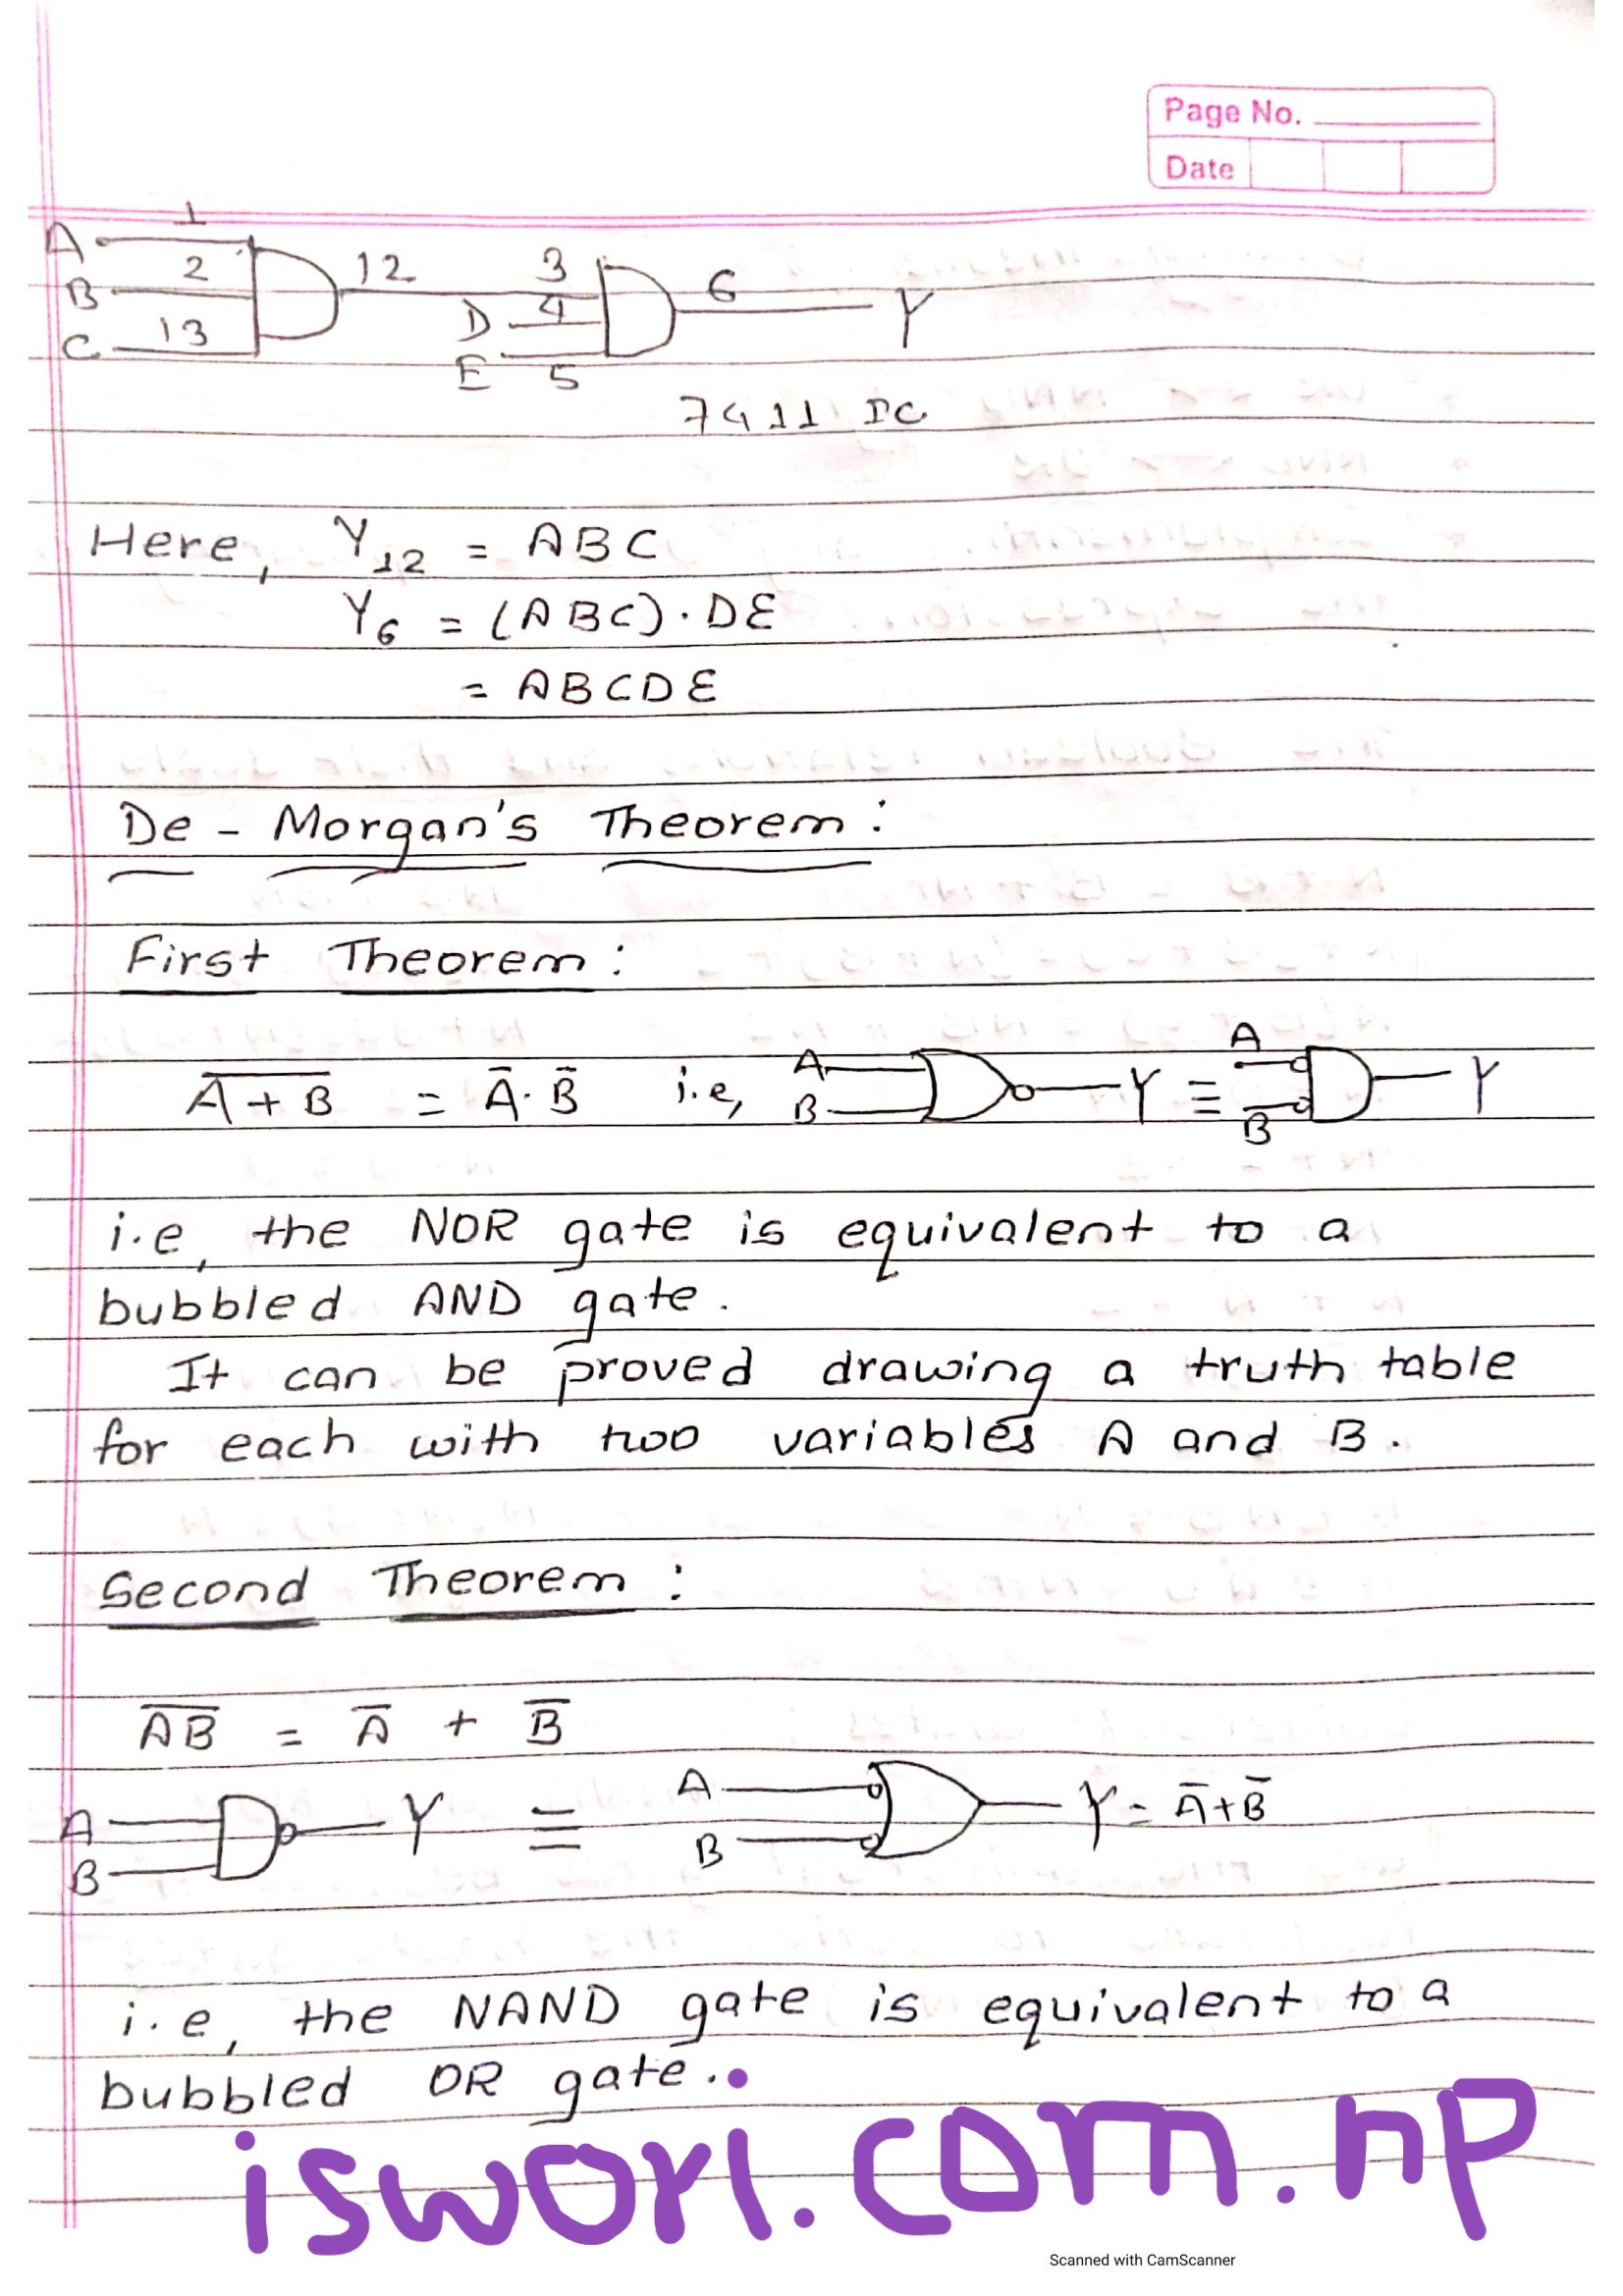 Page No.
Date
A 1
B 2 12 3 6 Y
C 13 D 4
E 5
7411 IC
Here, Y₁₂ = ABC
Y₆ = (ABC) · DE
= ABCDE
De - Morgan's Theorem :
First Theorem :
A̅+̅B̅ = A̅ · B̅ i.e, A B Y ≡ A B Y
i.e, the NOR gate is equivalent to a
bubbled AND gate.
It can be proved drawing a truth table
for each with two variables A and B.
Second Theorem :
A̅B̅ = A̅ + B̅
A B Y ≡ A B Y = A̅+B̅
i.e, the NAND gate is equivalent to a
bubbled OR gate.
iswori.com.np
Scanned with CamScanner